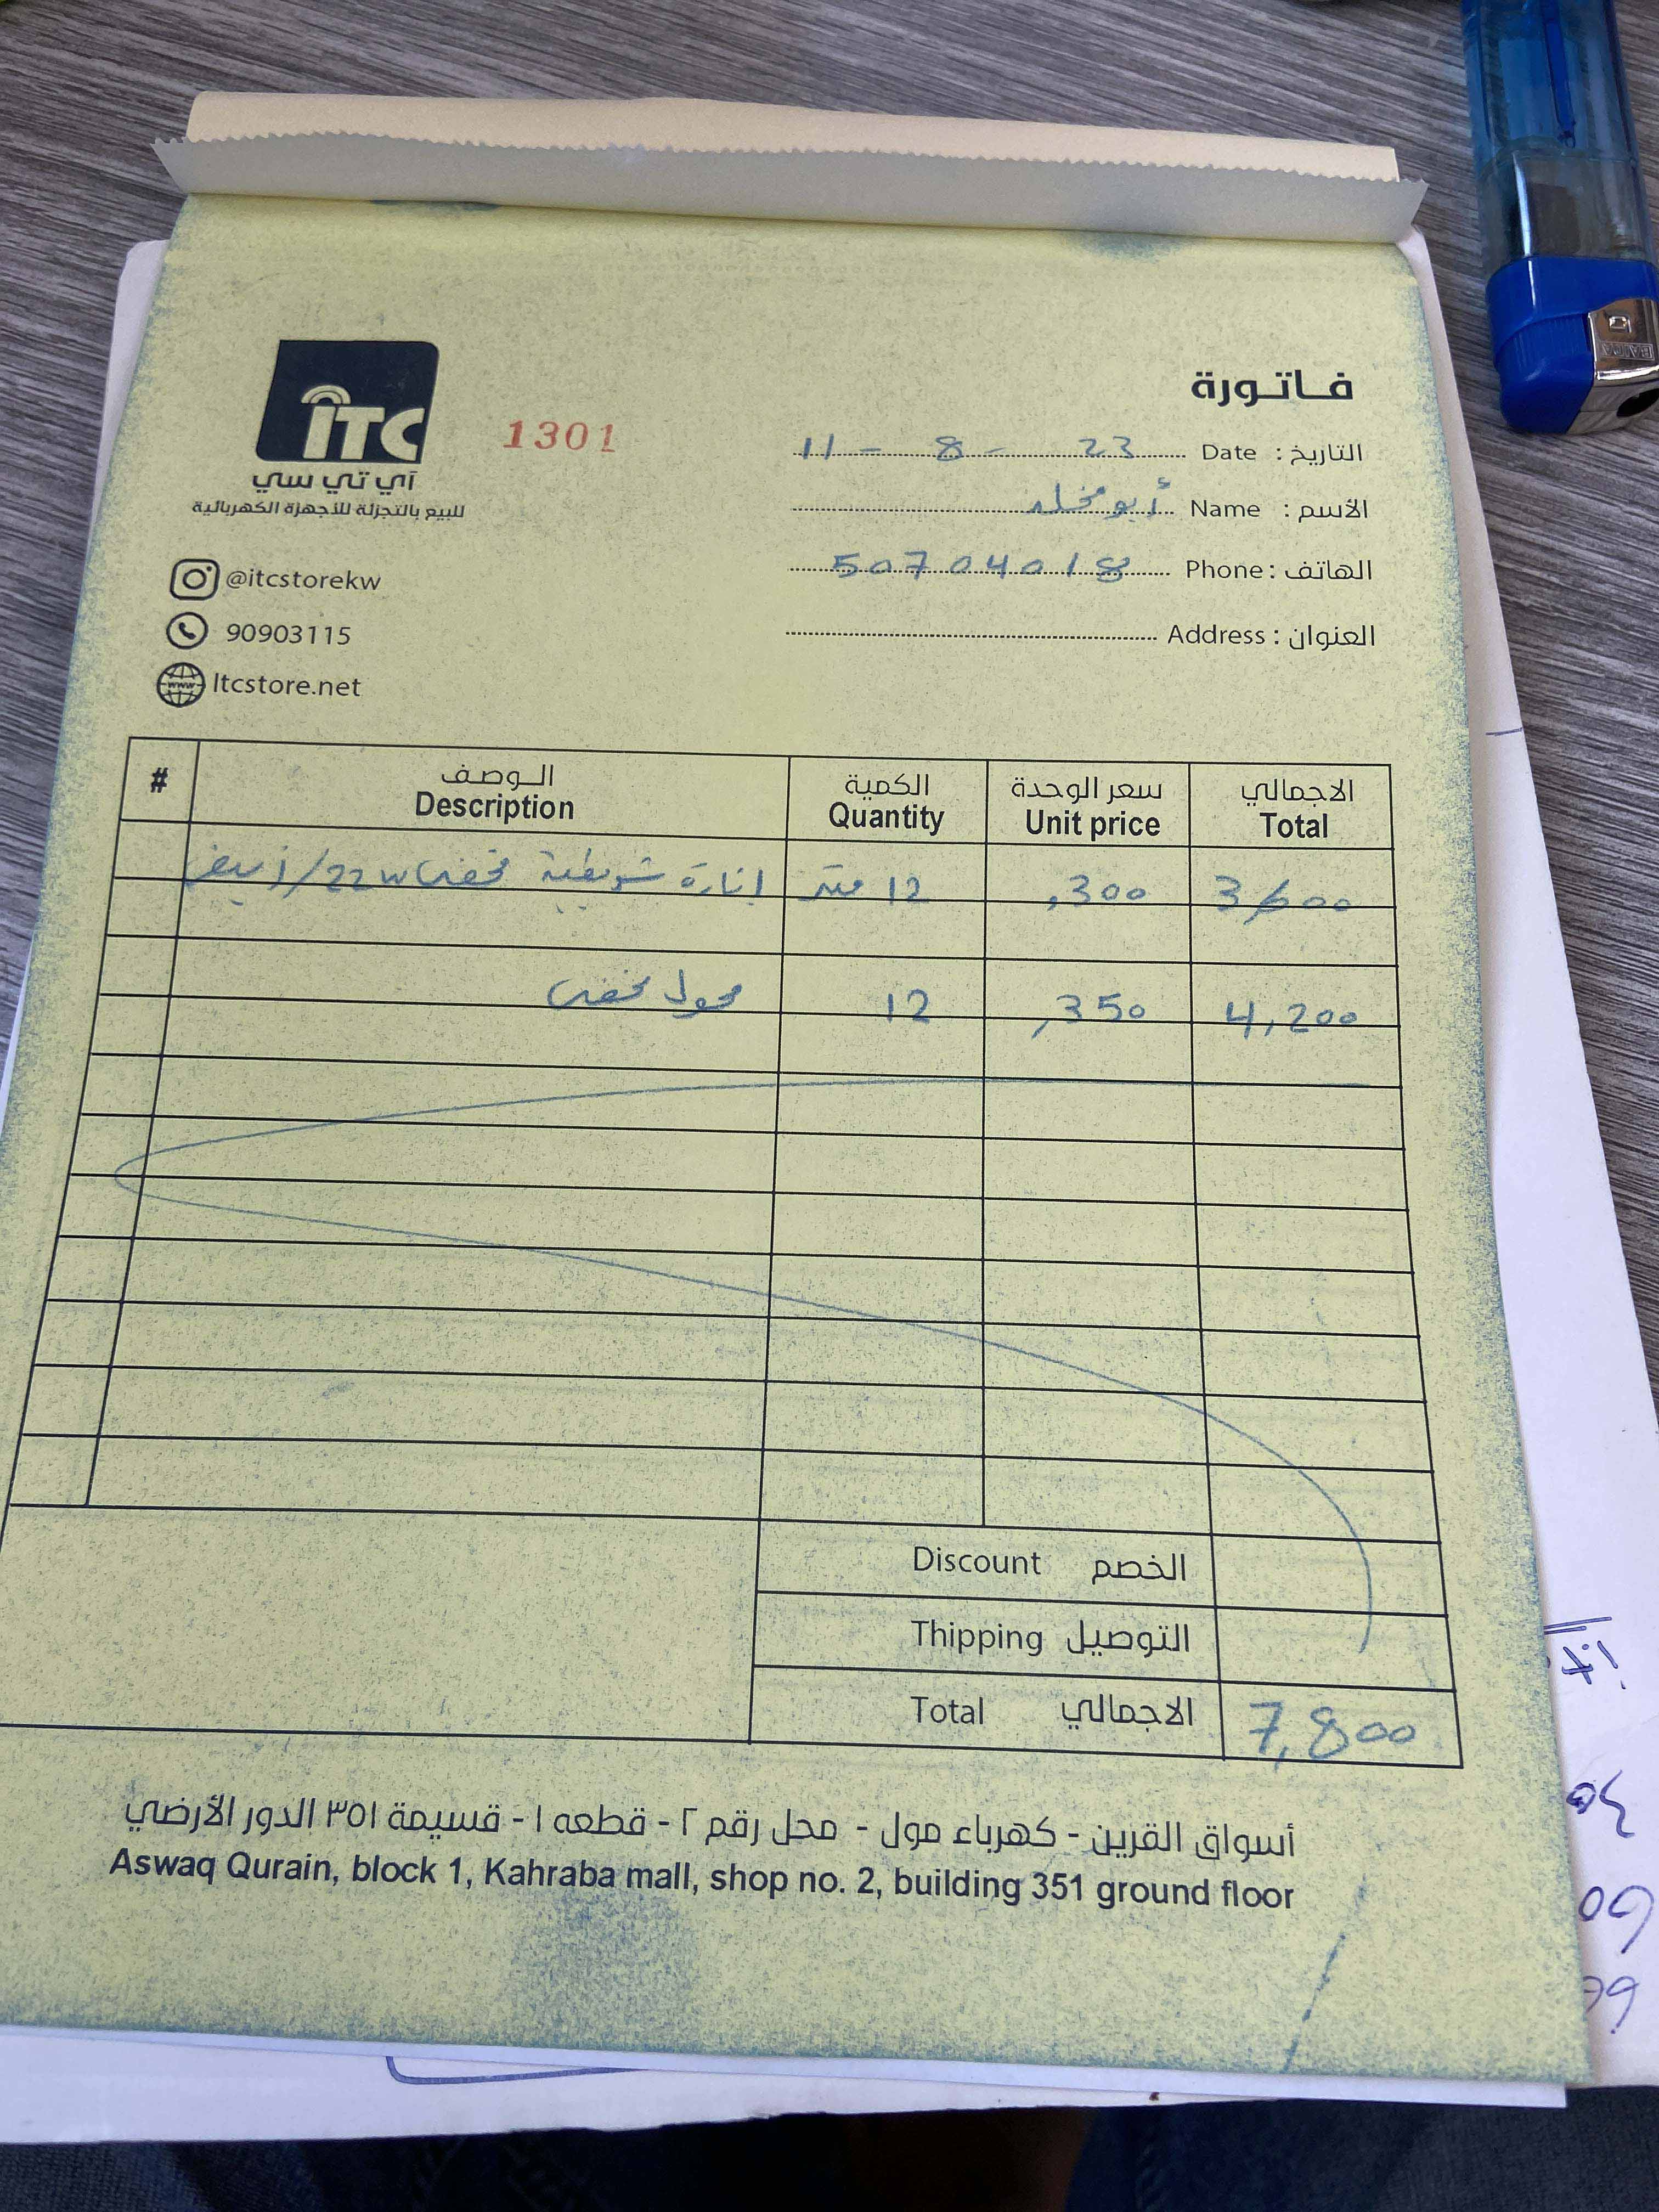 فاتورة
ITC
آي تي سي
للبيع بالتجزئة للأجهزة الكهربائية
1301
التاريخ : Date 11 - 8 - 23
الأسم : Name أبو مخلد
الهاتف : Phone 50704018
العنوان : Address
@itcstorekw
90903115
Itcstore.net
# الوصف الكمية سعر الوحدة الاجمالي
Description Quantity Unit price Total
إنارة شريطية مخفي 22w/أبيض 12 متر ,300 3,600
محول مخفي 12 ,350 4,200
Discount الخصم
Thipping التوصيل
Total الاجمالي 7,800
أسواق القرين - كهرباء مول - محل رقم ٢ - قطعه ١ - قسيمة ٣٥١ الدور الأرضي
Aswaq Qurain, block 1, Kahraba mall, shop no. 2, building 351 ground floor